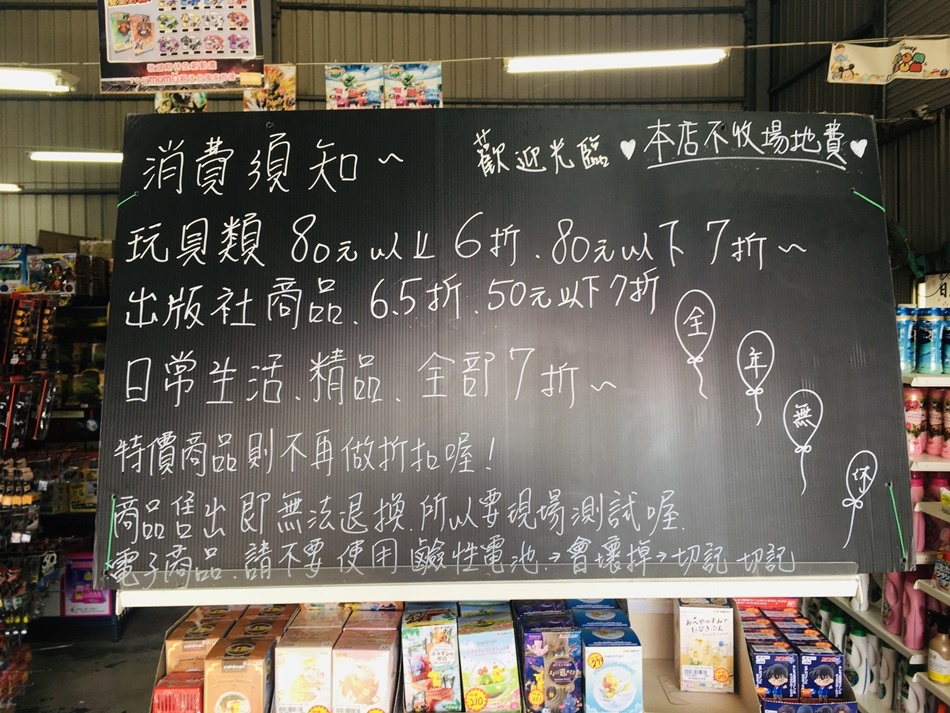 消費須知~
歡迎光臨♥本店不收場地費♥
玩具類 80元以上6折.80元以下7折~
出版社商品、6.5折.50元以下7折
日常生活、精品、全部7折~
特價商品則不再做折扣喔!
商品售出即無法退換.所以要現場測試喔.
電子商品.請不要使用鹼性電池→會壞掉→切記切記
全
年
無
休
momo
Disney
210